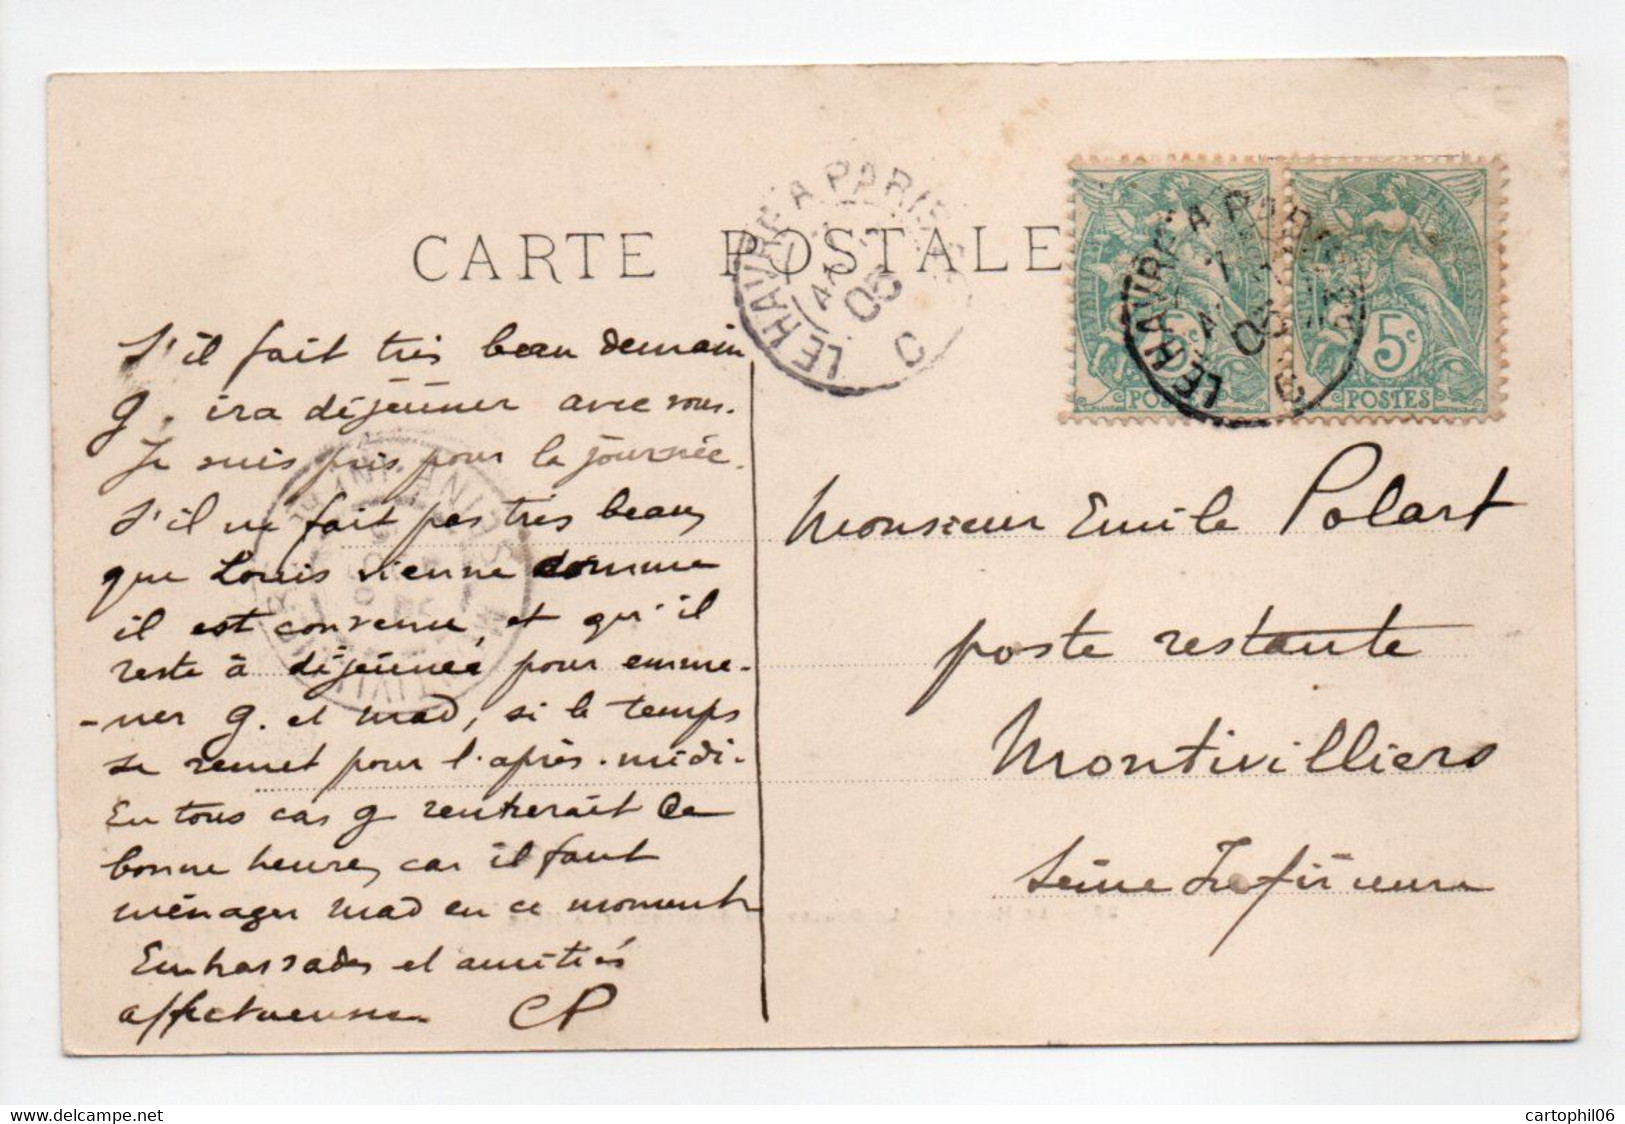 CARTE POSTALE
LE HAVRE A PARIS
05
LE HAVRE A PARIS
05
5c
5c
POSTES
POSTES
S'il fait très beau demain
G. ira déjeuner avec vous.
Je suis pris pour la journée.
S'il ne fait pas très beau,
que Louis vienne comme
il est convenu, et qu'il
reste à déjeuner pour emme-
-ner G. et Mad, si le temps
se remet pour l'après-midi.
En tous cas G rentrerait de
bonne heure, car il faut
ménager Mad en ce moment
Embrassades et amitiés
affectueuses CP
Monsieur Emile Polart
poste restante
Montivilliers
Seine Inférieure
www.delcampe.net
cartophil06